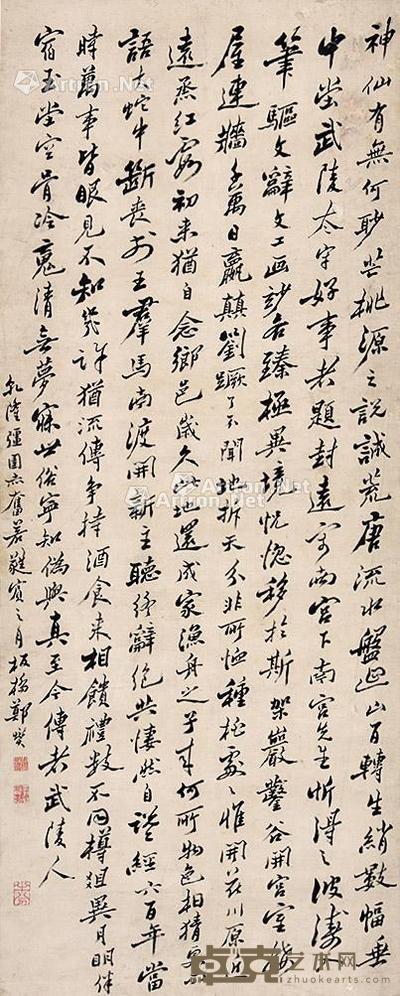 神仙有無何眇芒桃源之說誠荒唐流水盤迴山百轉生綃數幅垂
中堂武陵太守好事者題封遠寄南宮下南宮先生忻得之波濤入
筆驅文辭文工画妙各臻極異境恍惚移於斯架巖鑿谷開宮室接
屋連牆千萬日嬴顛劉蹶了不聞地拆天分非所恤種桃處處惟開花川原近
遠烝紅霞初來猶自念鄉邑歲久此地還成家漁舟之子來何所物色相猜更
語大蛇中斷喪前王羣馬南渡開新主聽終辭絕共悽然自說經六百年當
時萬事皆眼見不知幾許猶流傳爭持酒食來相饋禮數不同樽俎異月明伴
宿玉堂空骨冷魂清無夢寐世俗寧知偽與真至今傳者武陵人
乾隆彊圉赤奮若蕤賓之月板橋鄭燮
Artron.Net
卓克艺术网
zhuokearts.com